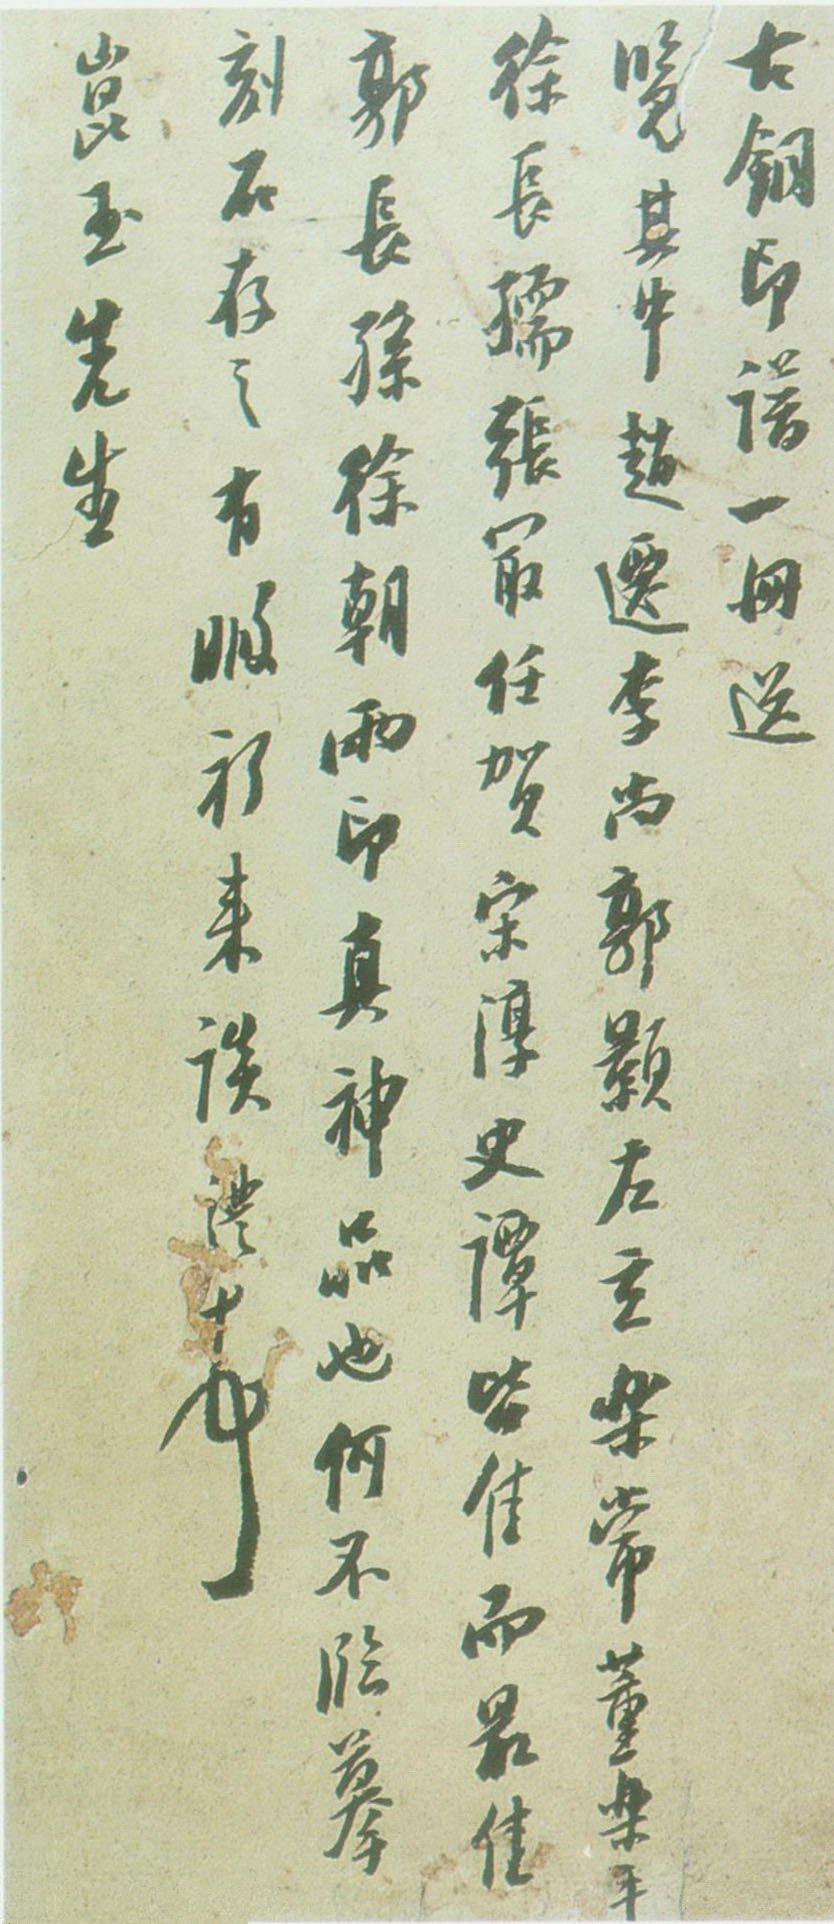 古銅印譜一冊送
覽其中趙遷李尚郭顥左立樂常董樂平
徐長孺張冣任賀宋淳史譚皆佳而最佳
郭長孫徐朝兩印真神品也何不臨摹
刻石存之有暇祈来談澧十
崑玉先生